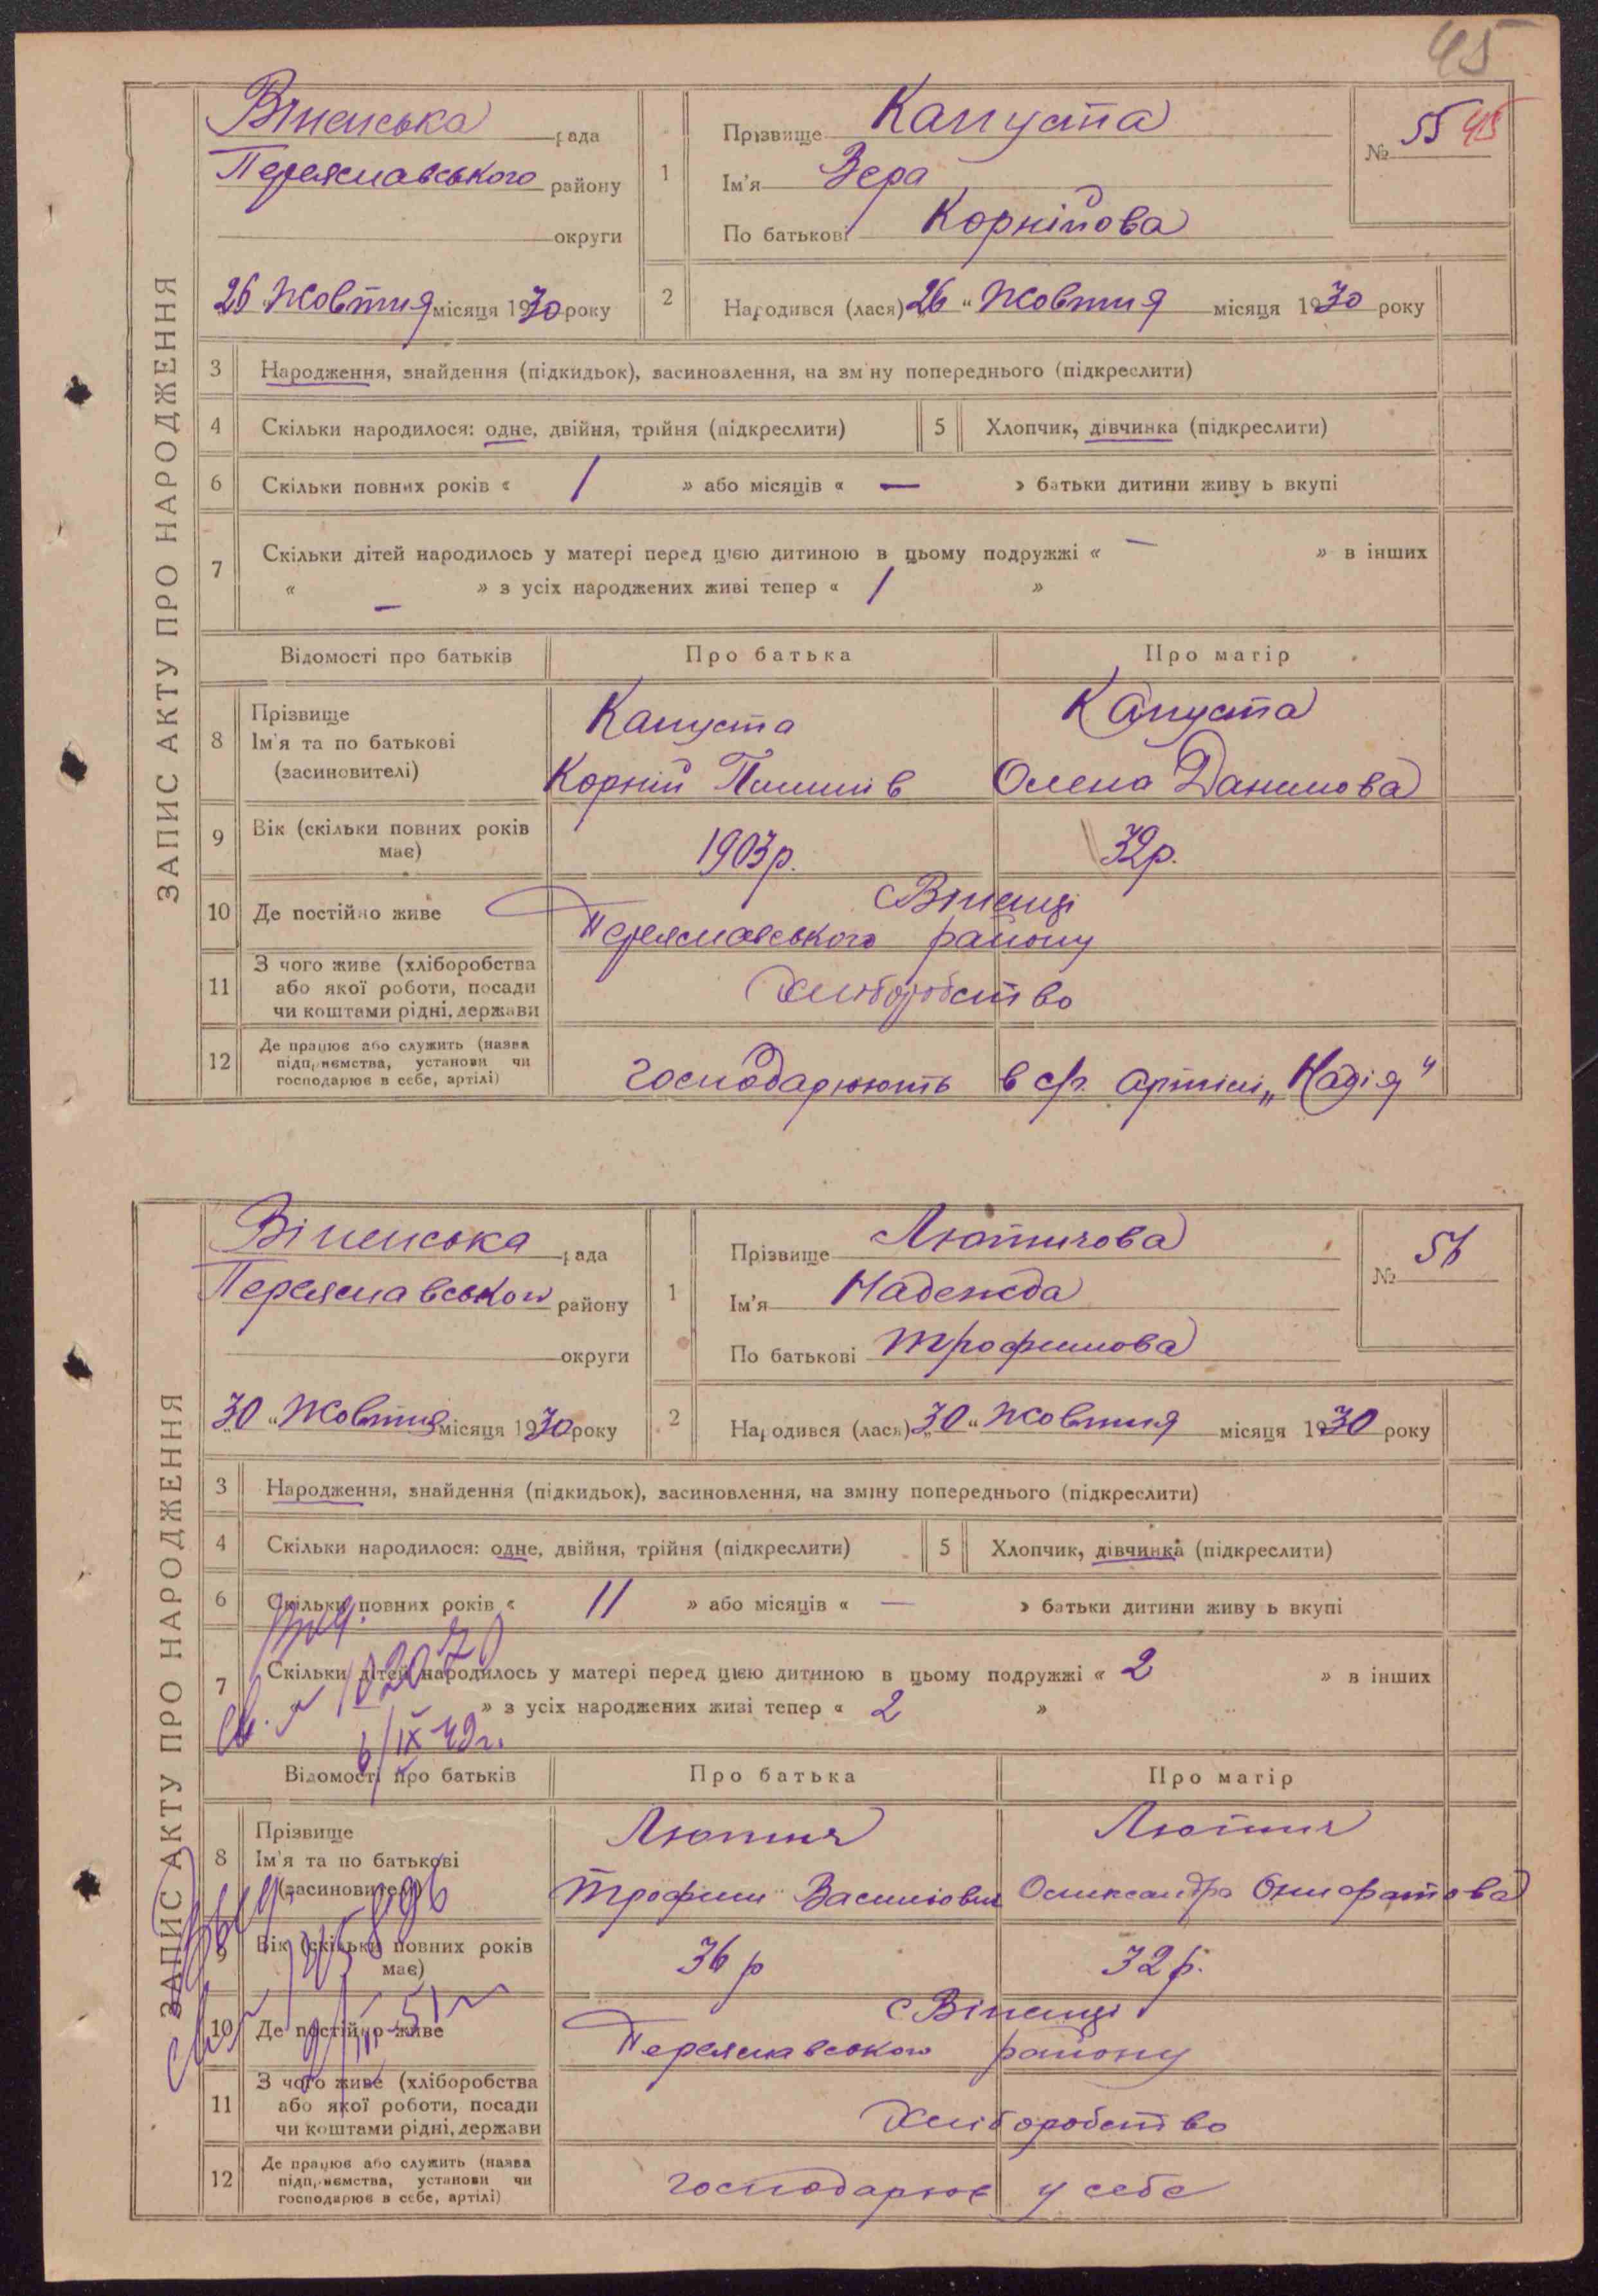 45
ЗАПИС АКТУ ПРО НАРОДЖЕННЯ
Віненська рада
Переяславського району
округи
26 Жовтня місяця 1930 року
1
Прізвище Капуста
Ім'я Вера
По батькові Корнійова
№ 55 45
2 Народився (лася) „26“ Жовтня місяця 1930 року
3 Народження, знайдення (підкидьок), засиновлення, на зміну попереднього (підкреслити)
4 Скільки народилося: одне, двійня, трійня (підкреслити) 5 Хлопчик, дівчинка (підкреслити)
6 Скільки повних років « 1 » або місяців « — » батьки дитини живуть вкупі
7 Скільки дітей народилось у матері перед цією дитиною в цьому подружжі « — » в інших
« — » з усіх народжених живі тепер « 1 »
Відомості про батьків Про батька Про матір
8 Прізвище
Ім'я та по батькові
(засиновителі)
Капуста Капуста
Корній Пилипів Олена Данилова
9 Вік (скільки повних років
має)
1903р. 32р.
10 Де постійно живе
с Віненці
Переяславського району
11 З чого живе (хліборобства
або якої роботи, посади
чи коштами рідні, держави
Хліборобство
12 Де працює або служить (назва
підприємства, установи чи
господарює в себе, артілі)
господарюють в с/г. артілі „Надія“
ЗАПИС АКТУ ПРО НАРОДЖЕННЯ
Віненська рада
Переяславського району
округи
„30“ Жовтня місяця 1930 року
1
Прізвище Лютичова
Ім'я Надежда
По батькові Трофимова
№ 56
2 Народився (лася) „30“ Жовтня місяця 1930 року
3 Народження, знайдення (підкидьок), засиновлення, на зміну попереднього (підкреслити)
4 Скільки народилося: одне, двійня, трійня (підкреслити) 5 Хлопчик, дівчинка (підкреслити)
6 Скільки повних років « 11 » або місяців « — » батьки дитини живуть вкупі
7 Скільки дітей народилось у матері перед цією дитиною в цьому подружжі « 2 » в інших
» з усіх народжених живі тепер « 2 »
6/IX-49г.
Відомості про батьків Про батька Про матір
8 Прізвище
Ім'я та по батькові
(засиновителі)
Трофим Васильович Олександра Онифратова
9 Вік (скільки повних років
має)
36 р 32 р.
10 Де постійно живе
с Віненці
Переяславського району
11 З чого живе (хліборобства
або якої роботи, посади
чи коштами рідні, держави
Хліборобство
12 Де працює або служить (назва
підприємства, установи чи
господарює в себе, артілі)
господарює у себе